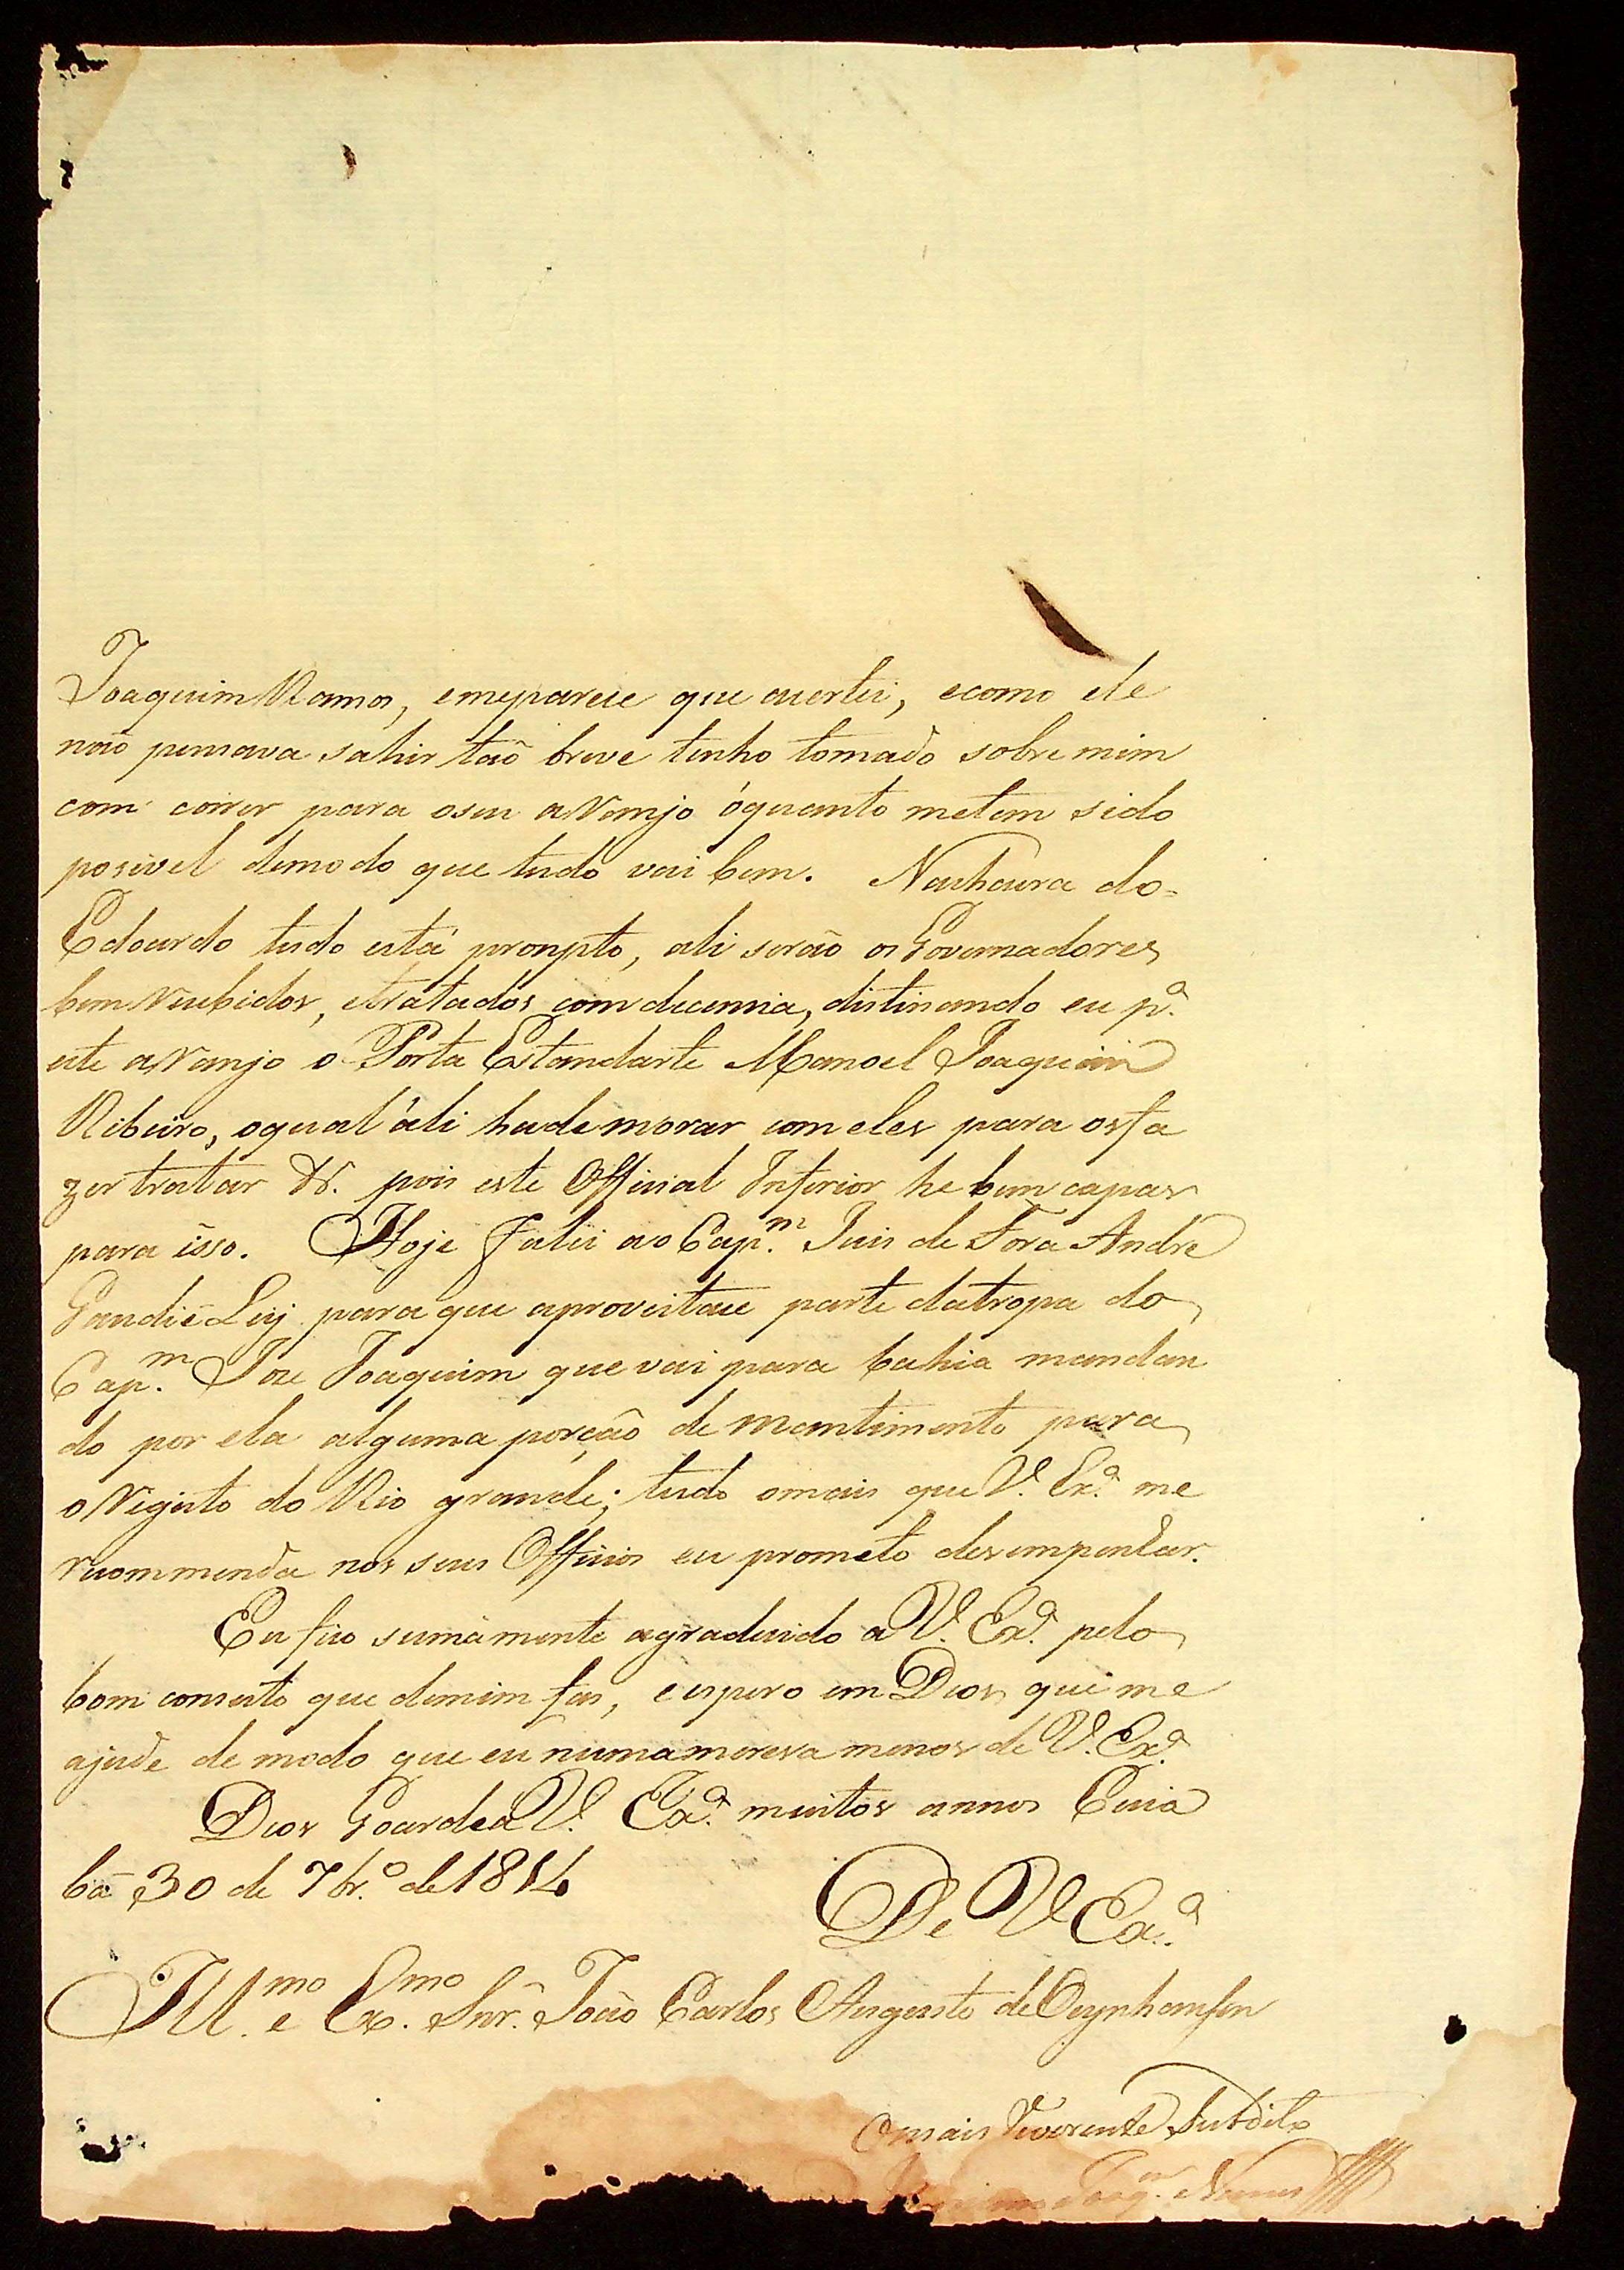 Joaquim Ramos, emeparece que acertei, ecomo ele
não pensava sahir taõ breve tenho tomado sobre mim
com correr para oseu arranjo óquanto metem sido
posivel demodo que tudo vai bem. Nachacra do=
Edoardo tudo está pronpto, ali serão os Governadores
bem recebidos, etratados com decencia, distinando eu p.ª
este arranjo o Porta Estandarte Manoel Joaquim
Ribeiro, oqual áli hade morar com eles para osfa
zer tratar &. pois este Official Inferior he bem capas
para isso. Hoje falei ao Cap.m Juis de Fora Andre
Gaudie Ley para que aproveitace parte datropa do
Cap.m Joze Joaquim que vai para bahia mandan
do por ela alguma porção de mantimento para
o Registo do Rio grande; tudo omais que V. Ex.ª me
recommenda nos seus Officios eu prometo desempenhar.
Eu fico sumamente agradecido a V. Ex.ª pelo
bom conseito que demim fas, eespero em Deos que me
ajude de modo que eu numca meresa menos de V. Ex.ª
Deos Goarde a V. Ex.ª muitos annos Cuia
bá 30 de 7br.º de 1814
De V Ex.ª
Ill.mo e Ex.mo Snr. João Carlos Augusto de Oeynhausen
Omais Reverente Subdito
Joaq.m Nunes